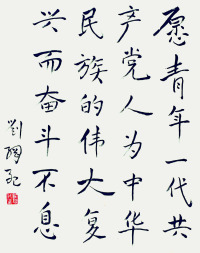 愿青年一代共
产党人为中华
民族的伟大复
兴而奋斗不息
劉綱紀